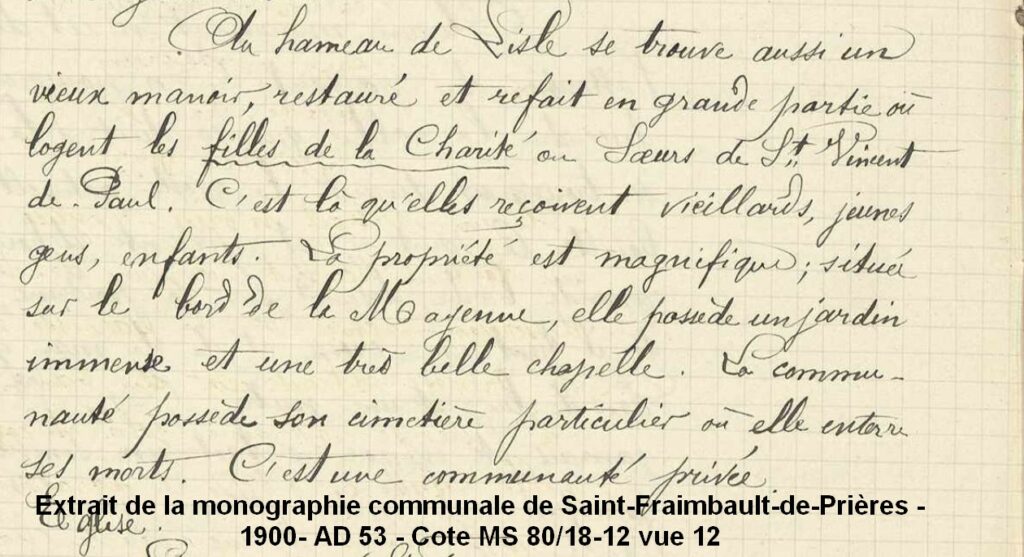 Au hameau de Lisle se trouve aussi un
vieux manoir, restauré et refait en grande partie où
logent les filles de la Charité ou Sœurs de St. Vincent
de-Paul. C'est là qu'elles reçoivent vieillards, jeunes
gens, enfants. La propriété est magnifique; située
sur le bord de la Mayenne, elle possède un jardin
immense et une très belle chapelle. La commu-
nauté possède son cimetière particulier où elle enterre
ses morts. C'est une communauté privée.
Extrait de la monographie communale de Saint-Fraimbault-de-Prières -
Eglise.
1900- AD 53 - Cote MS 80/18-12 vue 12